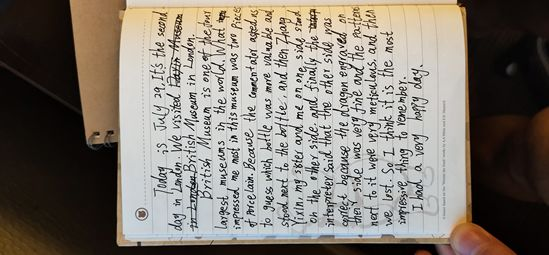 Today is July 29. It's the second
day in London. We visited British Museum
in London British Museum in London.
British Museum is one of the four
largest museums in the world. What
impressed me most in this museum was two Piece
of Porcelain. Because the commentator asked us
to guess which bottle was more valuable and
stood next to the bottle, and then Zhang
Yixin, my sister and me on one side stood
on the other side, and finally the
interpreter said that the other side was
correct because the dragon engraved on
their side was very fine and the pattern
next to it were very meticulous, and then
we lost. So I think it is the most
impressive thing to remember.
I had a very happy day.